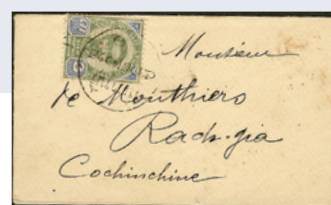 Monsieur
de Monthiers
Rach-gia
Cochinchine